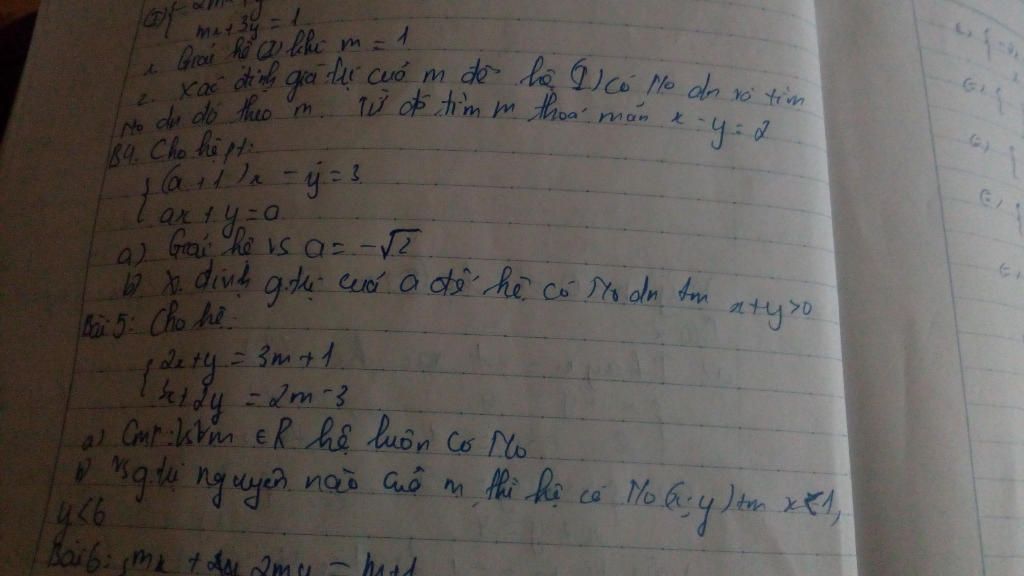 mx + 3y = 1
1. Giải hệ (I) khi m = 1
2. Xác định giá trị của m để hệ (I) có No dn và tìm
No dn đó theo m. Từ đó tìm m thoả mãn x - y = 2
B4. Cho hệ pt:
(a + 1)x - y = 3
ax + y = a
a) Giải hệ vs a = -√2
b) x. định g.trị củả a để hệ có No dn tm x+y>0
Bài 5: Cho hệ:
2x+y = 3m+1
x+2y = 2m-3
a) Cmr: ∀m ∈ R hệ luôn có No
b) vs g.trị nguyên nào của m thì hệ có No (x;y) tm x<1,
y<6
Bài 6: mx + 2my = m+1